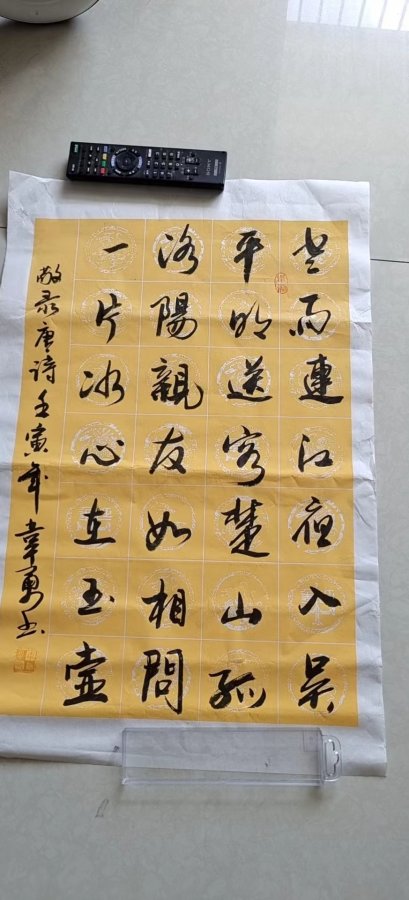 SONY
寒雨連江夜入吴
平明送客楚山孤
洛陽親友如相問
一片冰心在玉壶
敬录唐诗壬寅年章勇书